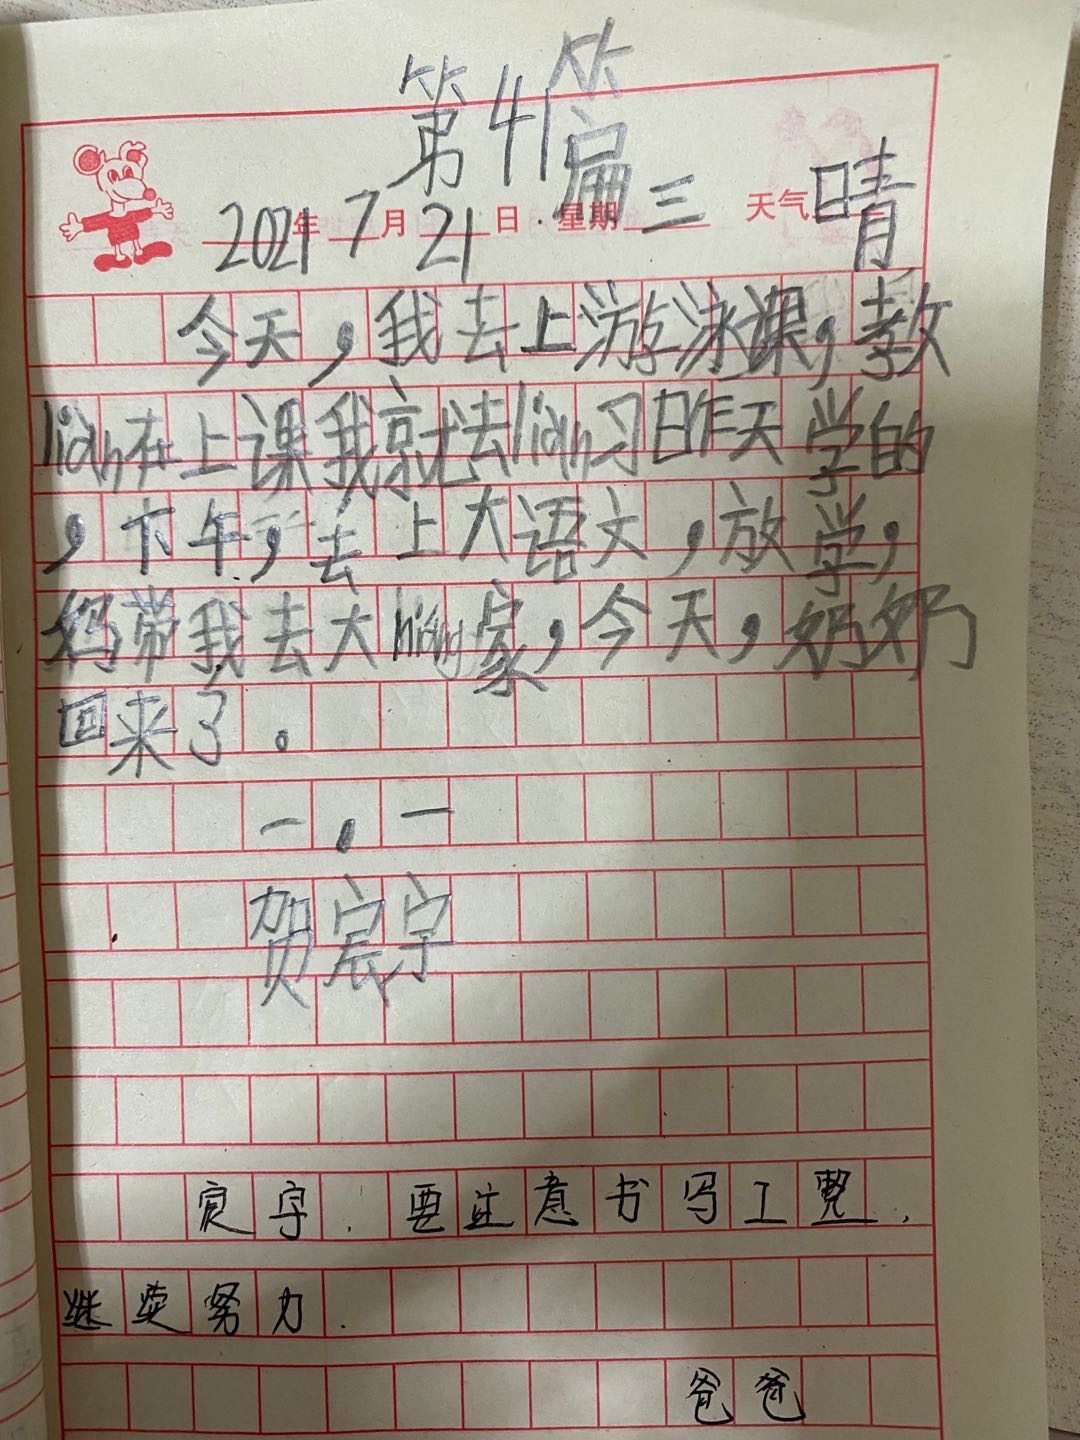 第41篇
2021年7月21日·星期三 天气晴
今天，我去上游泳课，教
lian在上课我就去lian习昨天学的
，下午，去上大语文，放学，
妈带我去大niang家，今天，奶奶
回来了。
一，一
贺宸宇
宸宇．要注意书写工整．
继续努力．
爸爸